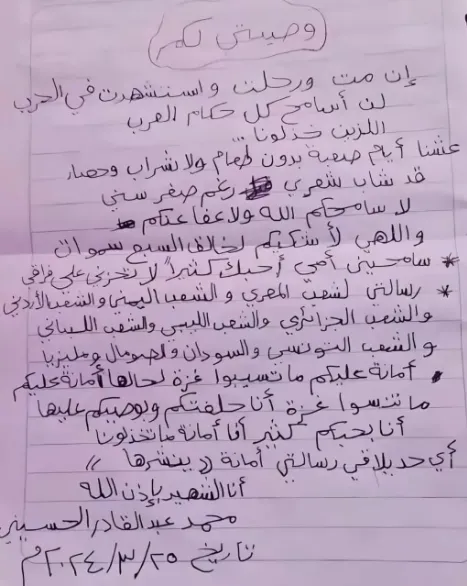 وصيتي لكم
إن مت ورحلت واستشهدت في الحرب
لن أسامح كل حكام العرب
اللزين خذلونا...
عشنا أيام صعبة بدون طعام ولا شراب وحصار
قد شاب شعري رغم صغر سني
لا سامحكم الله ولا عفا عنكم
واللهي لأشكيكم لخالق السبع سموات
* سامحيني أمي أحبك كثيراً لا تحزني علي فراقي
* رسالتي لشعب المصري والشعب اليمني والشعب الأردني
والشعب الجزائري والشعب الليبي والشعب اللبناني
والشعب التونسي والسودان والصومال وماليزيا
أمانة عليكم ما تسيبوا غزة لحالها أمانة عليكم
ما تنسوا غزة أنا حلفتكم وبوصيكم عليها
أنا بحبكم كثير أنا أمانة ما تخذلونا
أي حد يلاقي رسالتي أمانة (( ينشرها ))
أنا الشهيد بإذن الله
محمد عبد القادر الحسيني
تاريخ ٢٠٢٤/٣/٢٥م